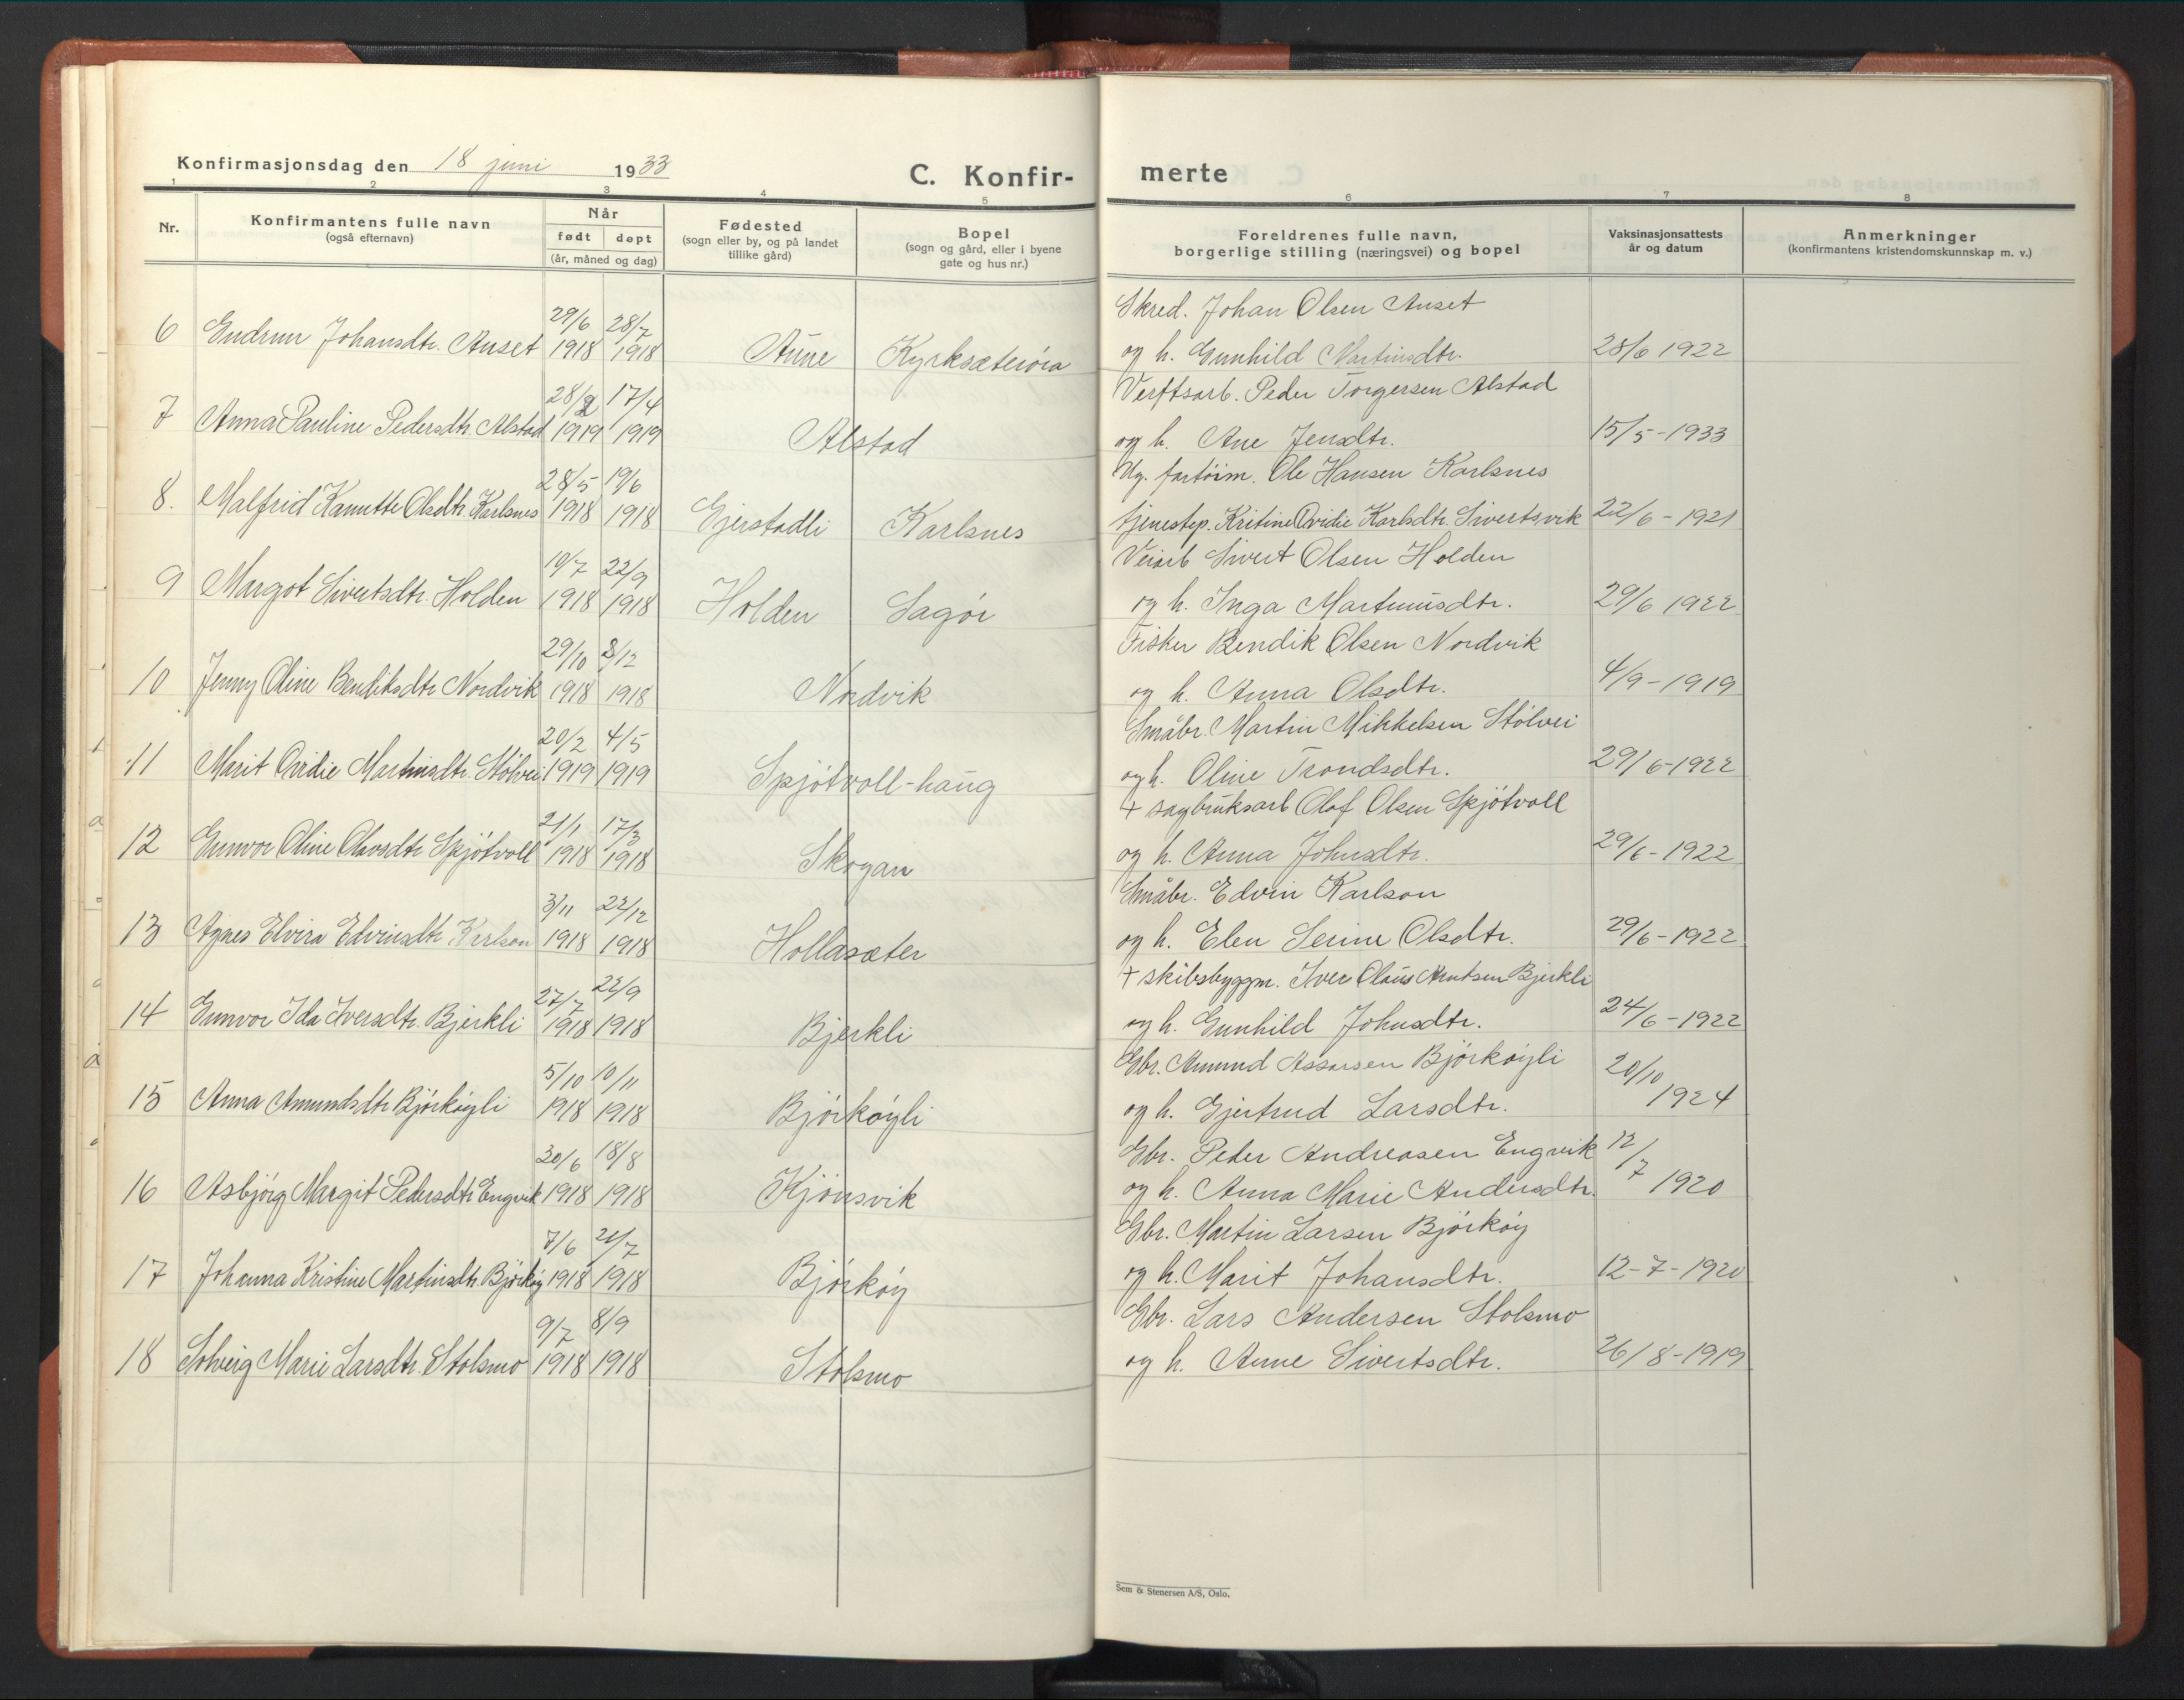 Konfirmasjonsdag den 18 juni 1933
C. Konfirmerte
1 2 3 4 5 6 7 8
Nr.
Konfirmantens fulle navn
(også efternavn)
Når
født døpt
(år, måned og dag)
Fødested
(sogn eller by, og på landet
tillike gård)
Bopel
(sogn og gård, eller i byene
gate og hus nr.)
Foreldrenes fulle navn,
borgerlige stilling (næringsvei) og bopel
Vaksinasjonsattests
år og datum
Anmerkninger
(konfirmantens kristendomskunnskap m. v.)
29/6 28/7 Skred. Johan Olsen Anset
6 Gudrun Johansdtr. Anset 1918 1918 Aune Kyrksæterøra og h. Gunhild Martinsdtr. 28/6 1922
28/2 17/4 Verftsarb. Peder Torgersen Alstad
7 Anna Pauline Pedersdtr. Alstad 1919 1919 Alstad og h. Ane Jensdtr. 15/5-1933
28/5 19/6 Ug. fartöim. Ole Hansen Karlsnes
8. Malfrid Kanutte Olsdtr. Karlsnes 1918 1918 Gjerstadli Karlsnes tjenestep. Kritine Ovidie Karlsdtr. Sivertsvik 22/6-1921
10/7 22/9 Veiarb Sivert Olsen Holden
9 Margot Sivertsdtr. Holden 1918 1918 Holden Sagör og h. Inga Martinusdtr. 29/6 1922
29/10 8/12 Fisker Bendik Olsen Nordvik
10 Jenny Oline Bendiksdtr Nordvik 1918 1918 Nordvik og h. Anna Olsdtr. 4/9-1919
20/2 4/5 Småbr. Martin Mikkelsen Stölvei
11 Marit Ovidie Martinsdtr. Stölvei 1919 1919 Spjötvoll-haug og h. Oline Trondsdtr. 29/6-1922
21/1 17/3 + sagbruksarb Olaf Olsen Spjötvoll
12 Gunvor Oline Olavsdtr Spjötvoll 1918 1918 Skogan og h. Anna Johnsdtr. 29/6-1922
3/11 22/12 Småbr. Edvin Karlson
13 Agnes Elvira Edvinsdtr Karlson 1918 1918 Hollasæter og h. Elen Serine Olsdtr. 29/6-1922
27/7 22/9 + skibsbyggm. Iver Olaus Knutsen Bjerkli
14 Gunvor Ida Iversdtr. Bjerkli 1918 1918 Bjerkli og h. Gunhild Johnsdtr. 24/6-1922
5/10 10/11 Gbr. Amund Assarsen Björköyli
15 Anna Amundsdtr Björköyli 1918 1918 Björköyli og h. Gjertrud Larsdtr. 20/10 1924
30/6 18/8 Gbr. Peder Andreasen Engvik
16 Asbjörg Margit Pedersdtr Engvik 1918 1918 Kjönsvik og h. Anna Marie Andersdtr. 12/7 1920
7/6 21/7 Gbr. Martin Larsen Björköy
17 Johanna Kristine Martinsdtr Björköy 1918 1918 Björköy og h. Marit Johansdtr. 12-7-1920
9/7 8/9 Gbr. Lars Andersen Stolsmo
18 Solveig Marie Larsdtr. Stolsmo 1918 1918 Stolsmo og h. Anne Sivertsdtr. 26/8-1919
Sem & Stenersen A/S, Oslo.